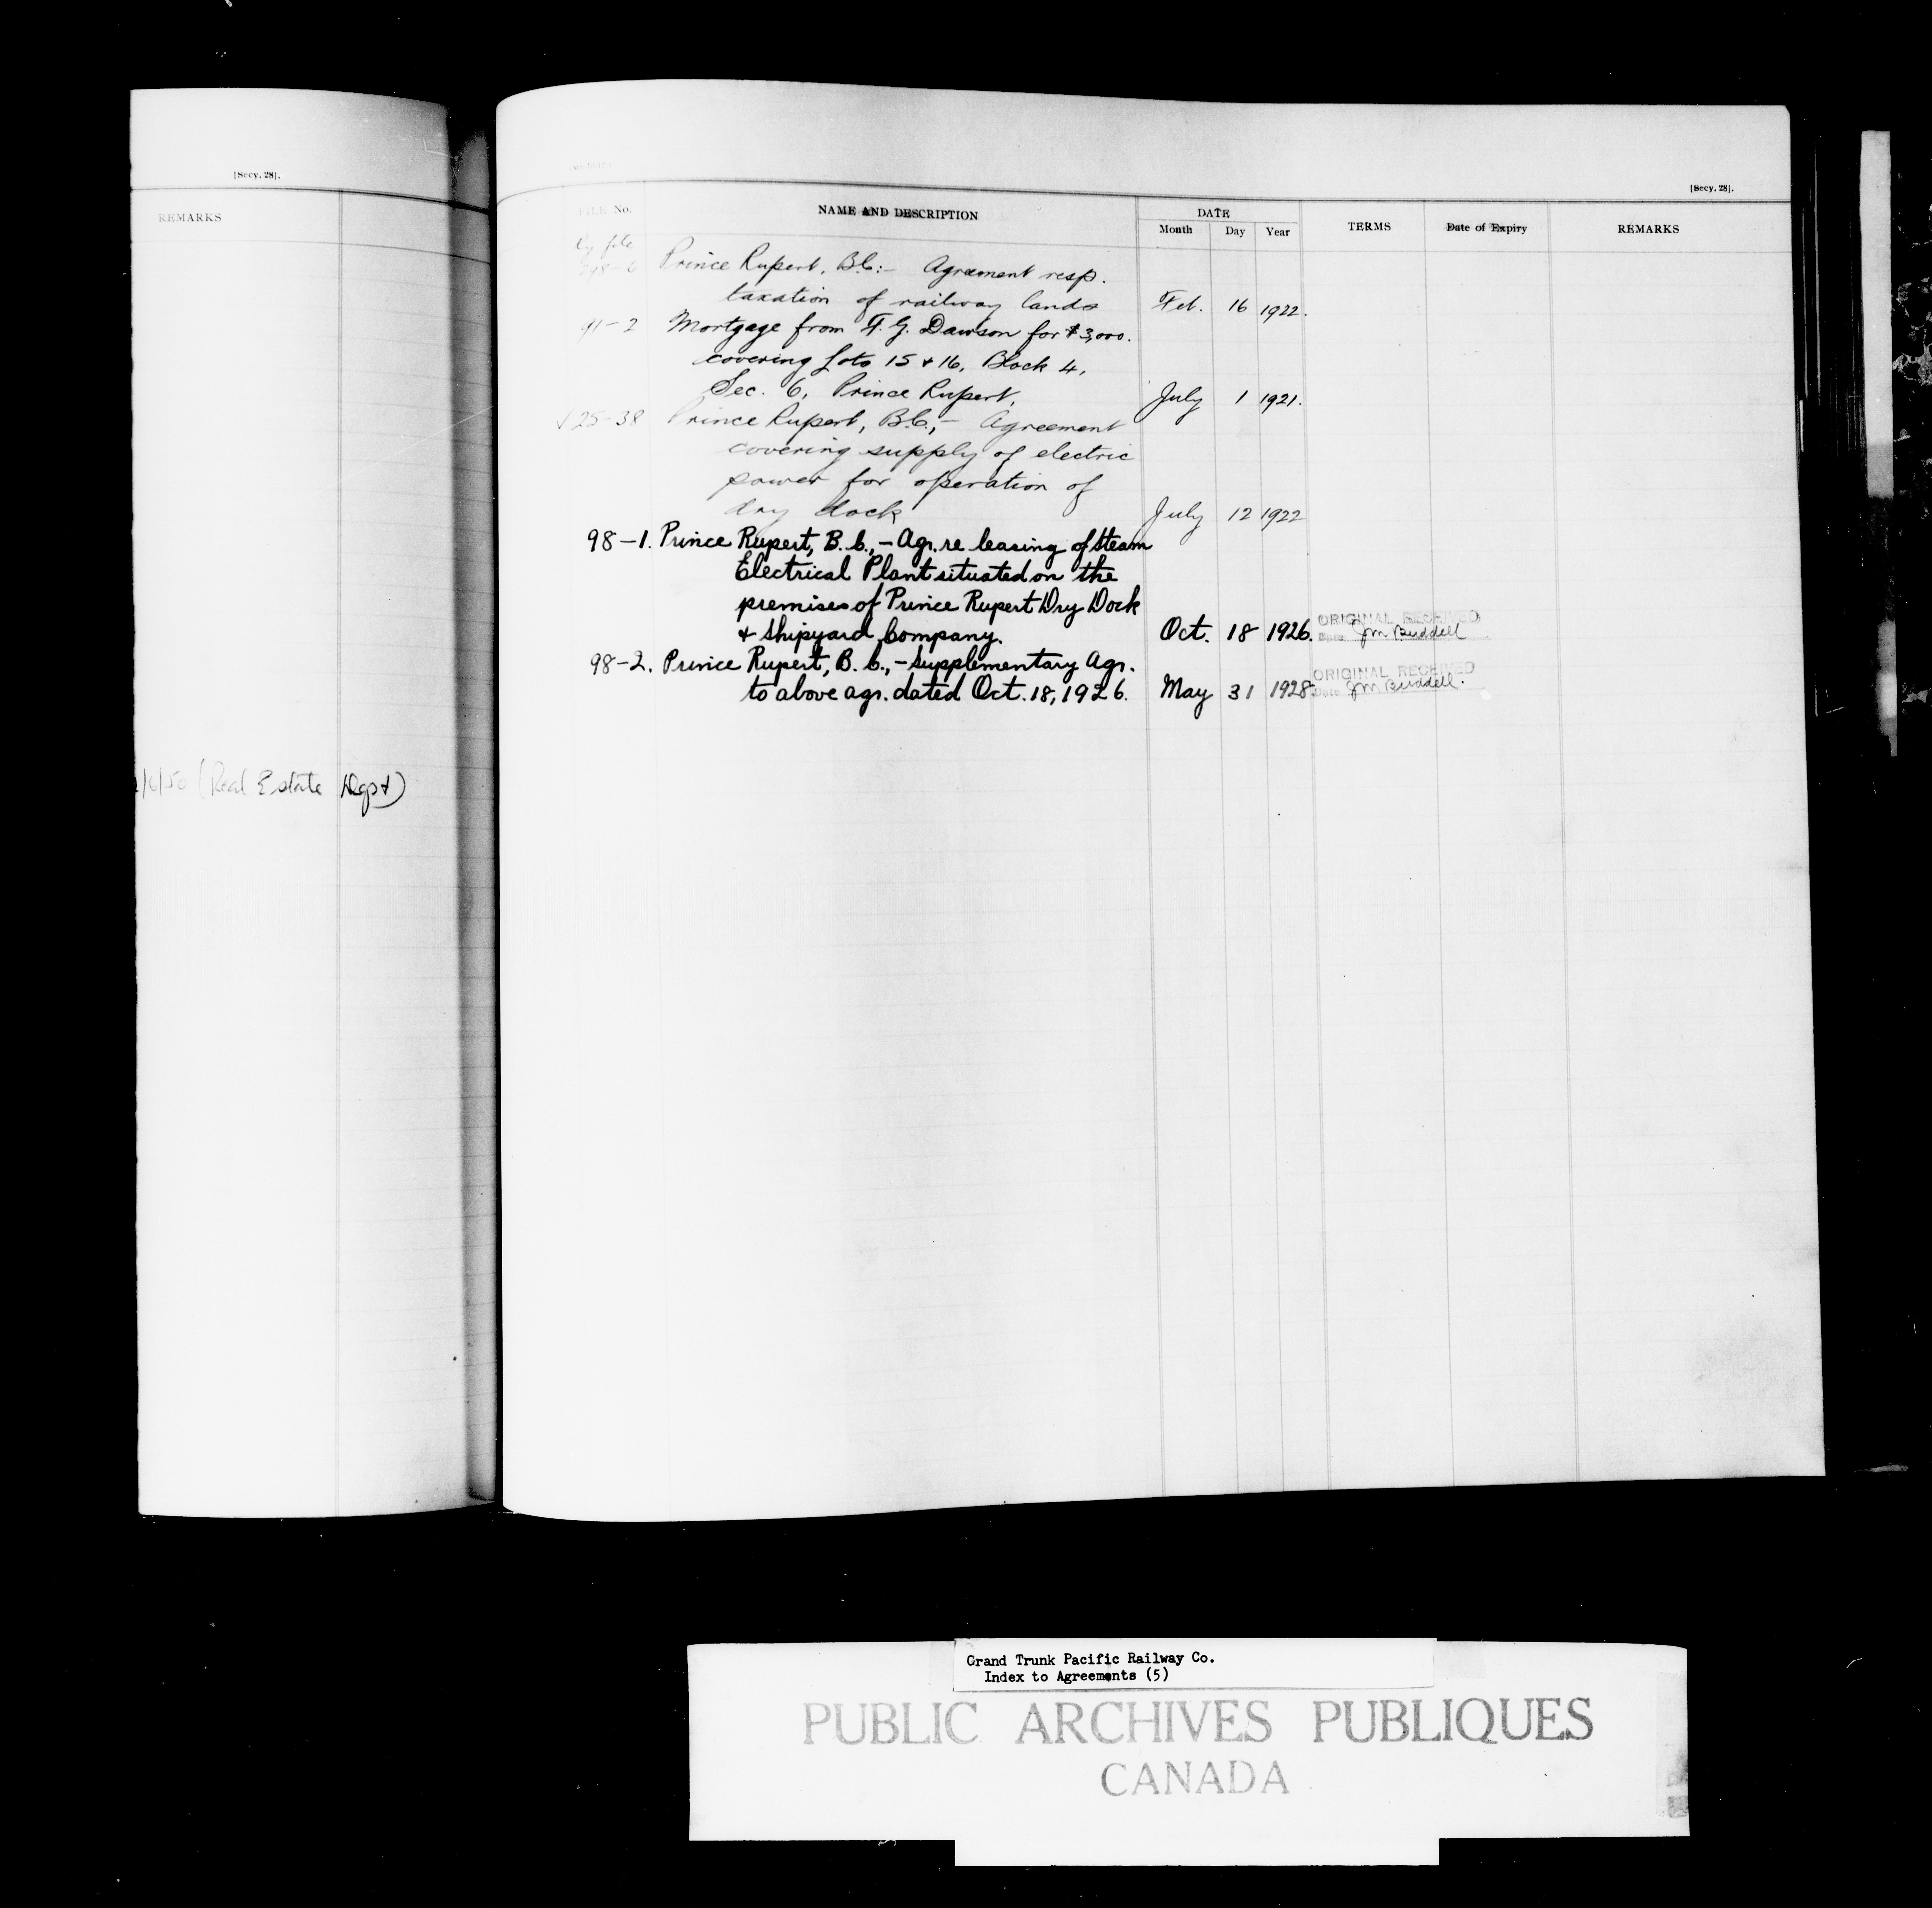 [Secy. 28].
REMARKS
/6/50 (Real Estate Dept)
[Secy. 28].
FILE No. NAME AND DESCRIPTION DATE TERMS Date of Expiry REMARKS
Month Day Year
file
Prince Rupert, B.C:- Agreement resp.
taxation of railway lands Feb. 16 1922.
91-2 Mortgage from F. G. Dawson for $3,000.
covering Lots 15 & 16, Block 4,
Sec. 6, Prince Rupert, July 1 1921.
√ 25-38 Prince Rupert, B.C.,- Agreement
covering supply of electric
power for operation of
dry dock July 12 1922
98-1. Prince Rupert, B.C.,- Agr. re leasing of Steam
Electrical Plant situated on the
premises of Prince Rupert Dry Dock
& Shipyard Company. Oct. 18 1926. ORIGINAL RECEIVED
Date JM Buddell
98-2. Prince Rupert, B.C.,- Supplementary Agr.
to above agr. dated Oct. 18, 1926. May 31 1928 ORIGINAL RECEIVED
Date JM Buddell.
Grand Trunk Pacific Railway Co.
Index to Agreements (5)
PUBLIC ARCHIVES PUBLIQUES
CANADA